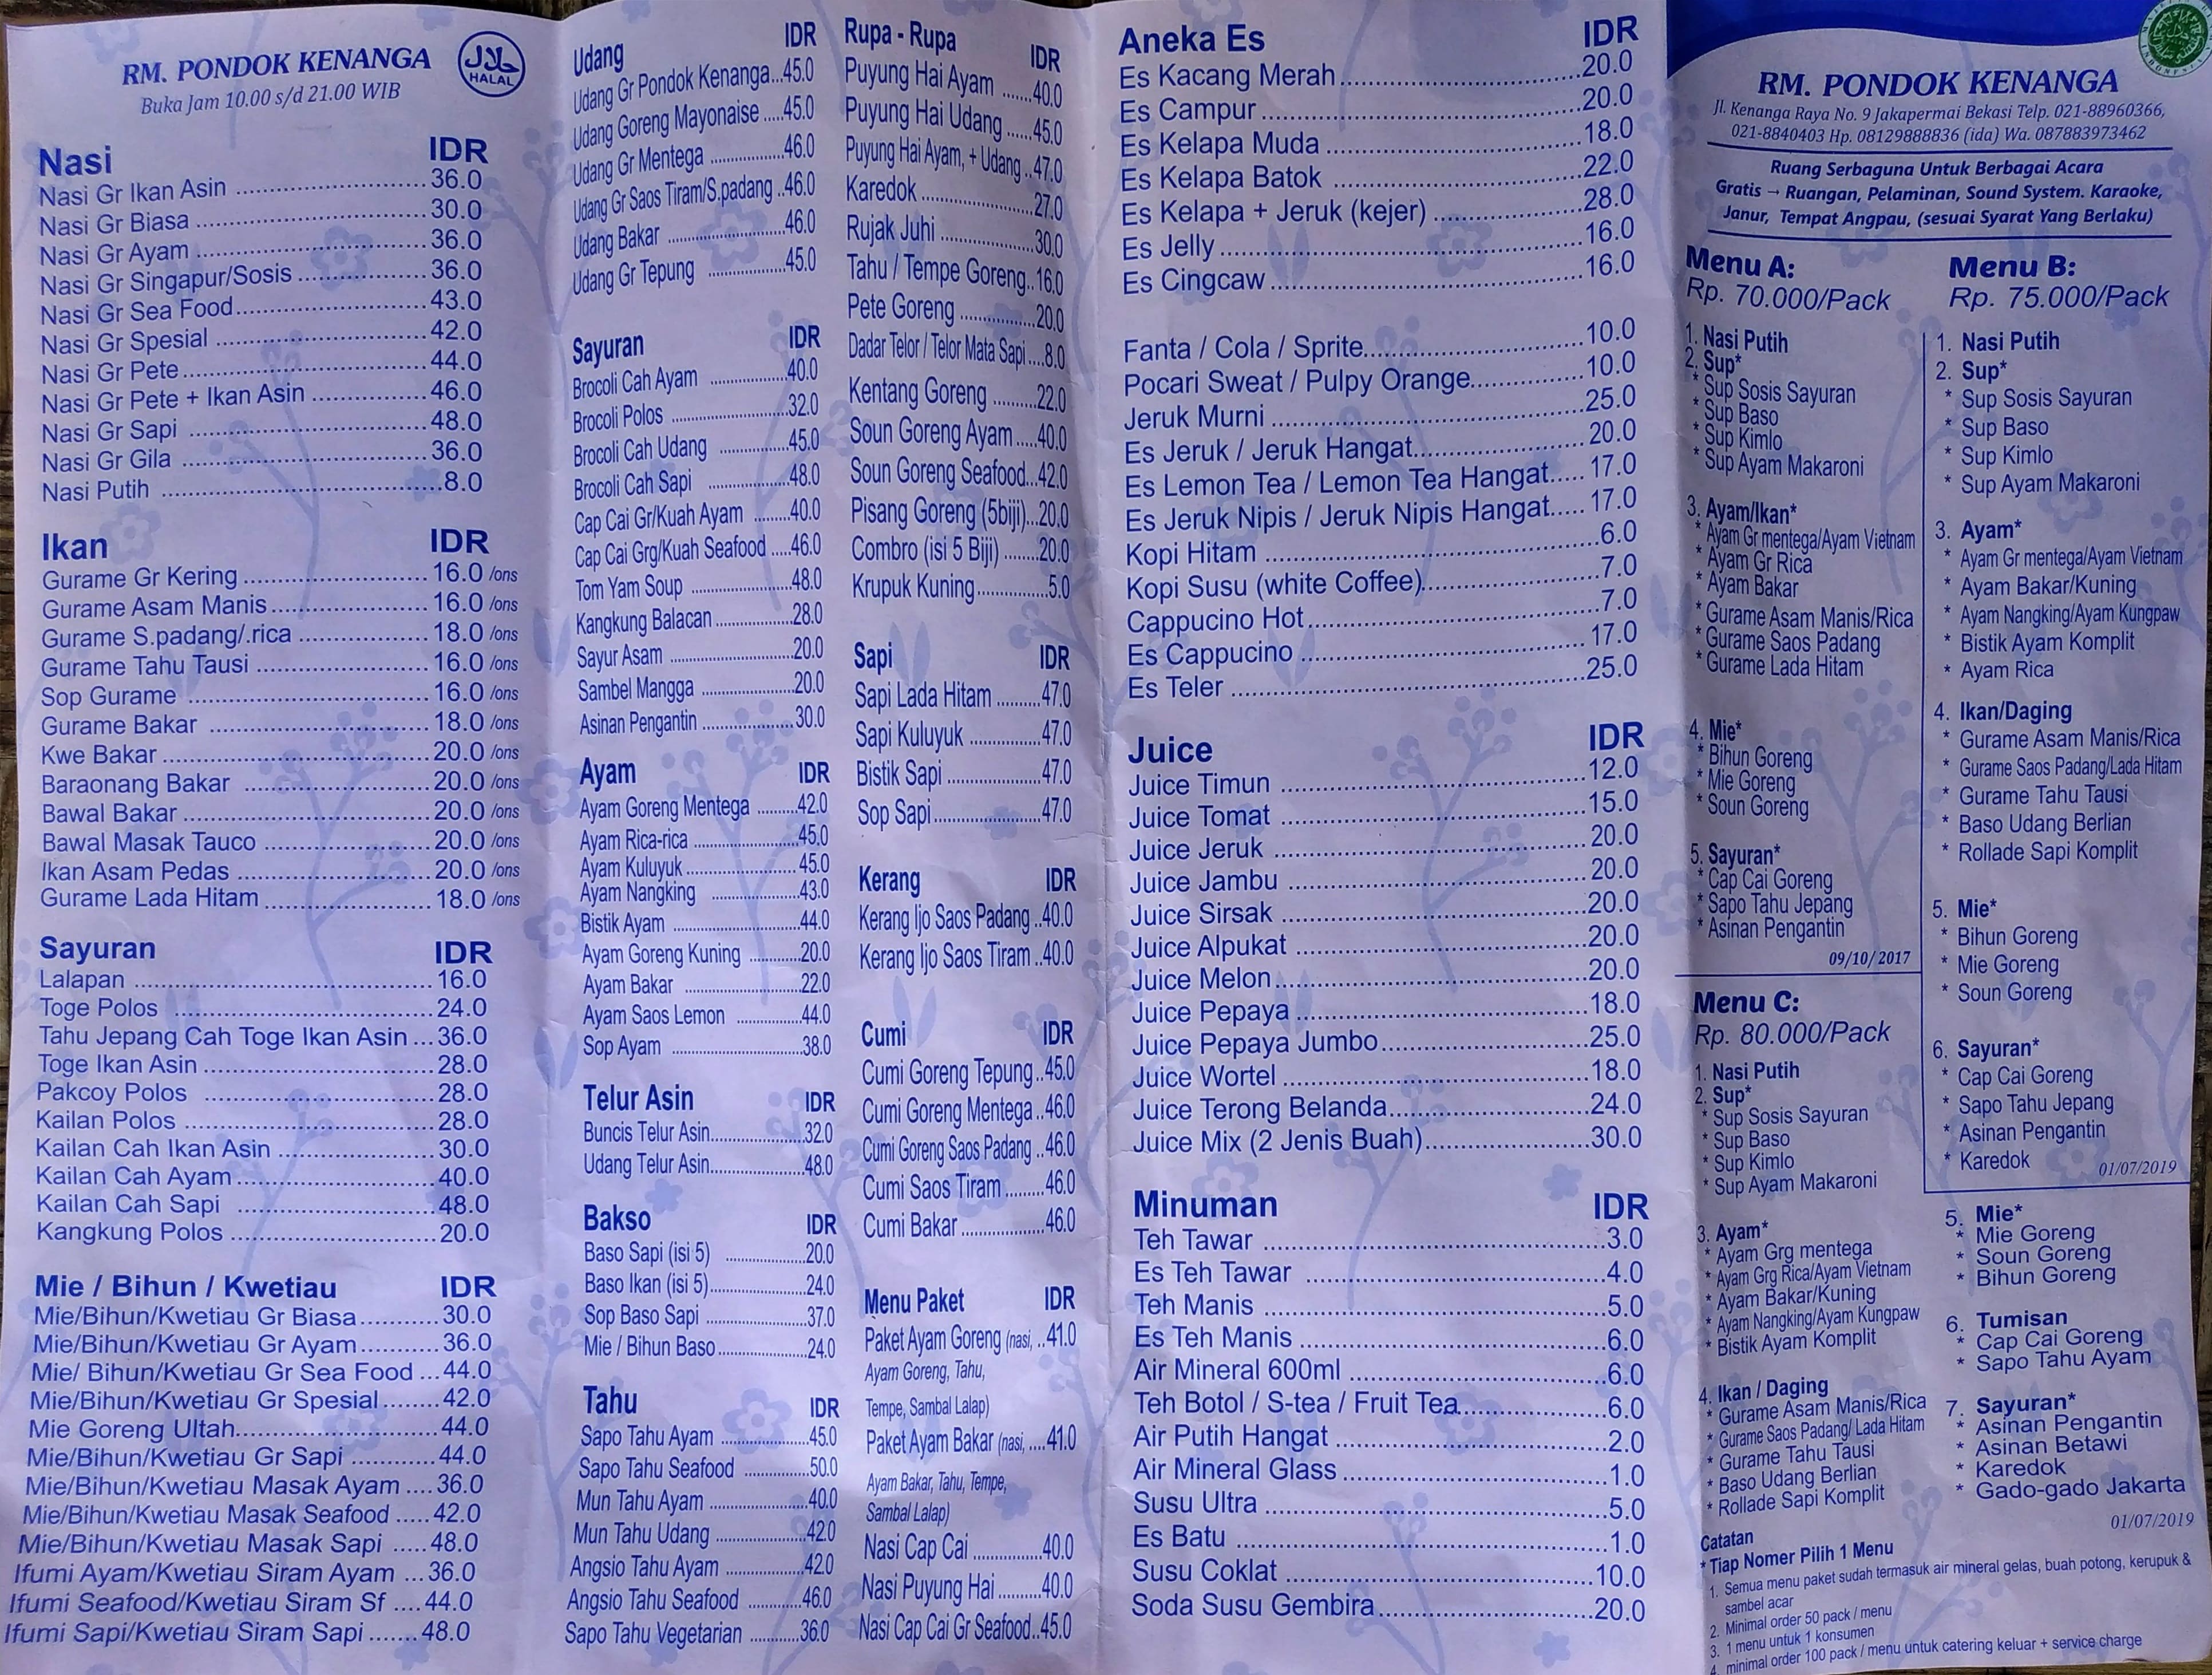 RM. PONDOK KENANGA
HALAL
Buka Jam 10.00 s/d 21.00 WIB
Nasi IDR
Nasi Gr Ikan Asin ....................36.0
Nasi Gr Biasa ....................30.0
Nasi Gr Ayam ....................36.0
Nasi Gr Singapur/Sosis ....................36.0
Nasi Gr Sea Food....................43.0
Nasi Gr Spesial ....................42.0
Nasi Gr Pete....................44.0
Nasi Gr Pete + Ikan Asin ....................46.0
Nasi Gr Sapi ....................48.0
Nasi Gr Gila ....................36.0
Nasi Putih ....................8.0
Ikan IDR
Gurame Gr Kering .................... 16.0 /ons
Gurame Asam Manis.................... 16.0 /ons
Gurame S.padang/.rica .................... 18.0 /ons
Gurame Tahu Tausi .................... 16.0 /ons
Sop Gurame .................... 16.0 /ons
Gurame Bakar .................... 18.0 /ons
Kwe Bakar .................... 20.0 /ons
Baraonang Bakar .................... 20.0 /ons
Bawal Bakar .................... 20.0 /ons
Bawal Masak Tauco .................... 20.0 /ons
Ikan Asam Pedas .................... 20.0 /ons
Gurame Lada Hitam .................... 18.0 /ons
Sayuran IDR
Lalapan .................... 16.0
Toge Polos .................... 24.0
Tahu Jepang Cah Toge Ikan Asin ...36.0
Toge Ikan Asin ....................28.0
Pakcoy Polos ....................28.0
Kailan Polos ....................28.0
Kailan Cah Ikan Asin ....................30.0
Kailan Cah Ayam....................40.0
Kailan Cah Sapi ....................48.0
Kangkung Polos ....................20.0
Mie / Bihun / Kwetiau IDR
Mie/Bihun/Kwetiau Gr Biasa...........30.0
Mie/Bihun/Kwetiau Gr Ayam...........36.0
Mie/ Bihun/Kwetiau Gr Sea Food ...44.0
Mie/Bihun/Kwetiau Gr Spesial........42.0
Mie Goreng Ultah....................44.0
Mie/Bihun/Kwetiau Gr Sapi ...........44.0
Mie/Bihun/Kwetiau Masak Ayam ....36.0
Mie/Bihun/Kwetiau Masak Seafood .....42.0
Mie/Bihun/Kwetiau Masak Sapi .....48.0
Ifumi Ayam/Kwetiau Siram Ayam ...36.0
Ifumi Seafood/Kwetiau Siram Sf ....44.0
Ifumi Sapi/Kwetiau Siram Sapi .......48.0
Udang IDR
Udang Gr Pondok Kenanga...45.0
Udang Goreng Mayonaise .....45.0
Udang Gr Mentega .................46.0
Udang Gr Saos Tiram/S.padang ..46.0
Udang Bakar ....................46.0
Udang Gr Tepung .................45.0
Sayuran IDR
Brocoli Cah Ayam .................40.0
Brocoli Polos ....................32.0
Brocoli Cah Udang ...............45.0
Brocoli Cah Sapi .................48.0
Cap Cai Gr/Kuah Ayam ........40.0
Cap Cai Grg/Kuah Seafood .....46.0
Tom Yam Soup ....................48.0
Kangkung Balacan ................28.0
Sayur Asam ....................20.0
Sambel Mangga ....................20.0
Asinan Pengantin ....................30.0
Ayam IDR
Ayam Goreng Mentega .........42.0
Ayam Rica-rica ....................45.0
Ayam Kuluyuk ....................45.0
Ayam Nangking ....................43.0
Bistik Ayam ....................44.0
Ayam Goreng Kuning ............20.0
Ayam Bakar ....................22.0
Ayam Saos Lemon ...............44.0
Sop Ayam ....................38.0
Telur Asin IDR
Buncis Telur Asin....................32.0
Udang Telur Asin....................48.0
Bakso IDR
Baso Sapi (isi 5) ....................20.0
Baso Ikan (isi 5)....................24.0
Sop Baso Sapi ....................37.0
Mie / Bihun Baso....................24.0
Tahu IDR
Sapo Tahu Ayam ....................45.0
Sapo Tahu Seafood ...............50.0
Mun Tahu Ayam ....................40.0
Mun Tahu Udang ....................42.0
Angsio Tahu Ayam ....................42.0
Angsio Tahu Seafood ............46.0
Sapo Tahu Vegetarian ...........36.0
Rupa - Rupa IDR
Puyung Hai Ayam ......40.0
Puyung Hai Udang ......45.0
Puyung Hai Ayam, + Udang ..47.0
Karedok....................27.0
Rujak Juhi ....................30.0
Tahu / Tempe Goreng..16.0
Pete Goreng ...............20.0
Dadar Telor / Telor Mata Sapi ...8.0
Kentang Goreng .........22.0
Soun Goreng Ayam .....40.0
Soun Goreng Seafood...42.0
Pisang Goreng (5biji)...20.0
Combro (isi 5 Biji) .......20.0
Krupuk Kuning..............5.0
Sapi IDR
Sapi Lada Hitam ..........47.0
Sapi Kuluyuk ................47.0
Bistik Sapi ....................47.0
Sop Sapi....................47.0
Kerang IDR
Kerang Ijo Saos Padang ..40.0
Kerang Ijo Saos Tiram ..40.0
Cumi IDR
Cumi Goreng Tepung..45.0
Cumi Goreng Mentega ..46.0
Cumi Goreng Saos Padang ..46.0
Cumi Saos Tiram .........46.0
Cumi Bakar ....................46.0
Menu Paket IDR
Paket Ayam Goreng (nasi, ..41.0
Ayam Goreng, Tahu,
Tempe, Sambal Lalap)
Paket Ayam Bakar (nasi, ....41.0
Ayam Bakar, Tahu, Tempe,
Sambal Lalap)
Nasi Cap Cai ...............40.0
Nasi Puyung Hai ..........40.0
Nasi Cap Cai Gr Seafood..45.0
Aneka Es IDR
Es Kacang Merah....................20.0
Es Campur ....................20.0
Es Kelapa Muda ....................18.0
Es Kelapa Batok ....................22.0
Es Kelapa + Jeruk (kejer) ....................28.0
Es Jelly ....................16.0
Es Cingcaw ....................16.0
Fanta / Cola / Sprite....................10.0
Pocari Sweat / Pulpy Orange...............10.0
Jeruk Murni ....................25.0
Es Jeruk / Jeruk Hangat....................20.0
Es Lemon Tea / Lemon Tea Hangat..... 17.0
Es Jeruk Nipis / Jeruk Nipis Hangat..... 17.0
Kopi Hitam ....................6.0
Kopi Susu (white Coffee)....................7.0
Cappucino Hot....................7.0
Es Cappucino ....................17.0
Es Teler ....................25.0
Juice IDR
Juice Timun ....................12.0
Juice Tomat ....................15.0
Juice Jeruk ....................20.0
Juice Jambu ....................20.0
Juice Sirsak ....................20.0
Juice Alpukat ....................20.0
Juice Melon....................20.0
Juice Pepaya ....................18.0
Juice Pepaya Jumbo....................25.0
Juice Wortel ....................18.0
Juice Terong Belanda....................24.0
Juice Mix (2 Jenis Buah)....................30.0
Minuman IDR
Teh Tawar ....................3.0
Es Teh Tawar ....................4.0
Teh Manis ....................5.0
Es Teh Manis ....................6.0
Air Mineral 600ml ....................6.0
Teh Botol / S-tea / Fruit Tea....................6.0
Air Putih Hangat ....................2.0
Air Mineral Glass ....................1.0
Susu Ultra ....................5.0
Es Batu ....................1.0
Susu Coklat ....................10.0
Soda Susu Gembira....................20.0
RM. PONDOK KENANGA
Jl. Kenanga Raya No. 9 Jakapermai Bekasi Telp. 021-88960366,
021-8840403 Hp. 08129888836 (ida) Wa. 087883973462
Ruang Serbaguna Untuk Berbagai Acara
Gratis → Ruangan, Pelaminan, Sound System. Karaoke,
Janur, Tempat Angpau, (sesuai Syarat Yang Berlaku)
Menu A:
Rp. 70.000/Pack
1. Nasi Putih
2. Sup*
* Sup Sosis Sayuran
* Sup Baso
* Sup Kimlo
* Sup Ayam Makaroni
3. Ayam/Ikan*
* Ayam Gr mentega/Ayam Vietnam
* Ayam Gr Rica
* Ayam Bakar
* Gurame Asam Manis/Rica
* Gurame Saos Padang
* Gurame Lada Hitam
4. Mie*
* Bihun Goreng
* Mie Goreng
* Soun Goreng
5. Sayuran*
* Cap Cai Goreng
* Sapo Tahu Jepang
* Asinan Pengantin
09/10/2017
Menu B:
Rp. 75.000/Pack
1. Nasi Putih
2. Sup*
* Sup Sosis Sayuran
* Sup Baso
* Sup Kimlo
* Sup Ayam Makaroni
3. Ayam*
* Ayam Gr mentega/Ayam Vietnam
* Ayam Bakar/Kuning
* Ayam Nangking/Ayam Kungpaw
* Bistik Ayam Komplit
* Ayam Rica
4. Ikan/Daging
* Gurame Asam Manis/Rica
* Gurame Saos Padang/Lada Hitam
* Gurame Tahu Tausi
* Baso Udang Berlian
* Rollade Sapi Komplit
5. Mie*
* Bihun Goreng
* Mie Goreng
* Soun Goreng
6. Sayuran*
* Cap Cai Goreng
* Sapo Tahu Jepang
* Asinan Pengantin
* Karedok
01/07/2019
Menu C:
Rp. 80.000/Pack
1. Nasi Putih
2. Sup*
* Sup Sosis Sayuran
* Sup Baso
* Sup Kimlo
* Sup Ayam Makaroni
3. Ayam*
* Ayam Grg mentega
* Ayam Grg Rica/Ayam Vietnam
* Ayam Bakar/Kuning
* Ayam Nangking/Ayam Kungpaw
* Bistik Ayam Komplit
4. Ikan / Daging
* Gurame Asam Manis/Rica
* Gurame Saos Padang/ Lada Hitam
* Gurame Tahu Tausi
* Baso Udang Berlian
* Rollade Sapi Komplit
5. Mie*
* Mie Goreng
* Soun Goreng
* Bihun Goreng
6. Tumisan
* Cap Cai Goreng
* Sapo Tahu Ayam
7. Sayuran*
* Asinan Pengantin
* Asinan Betawi
* Karedok
* Gado-gado Jakarta
01/07/2019
Catatan
* Tiap Nomer Pilih 1 Menu
1. Semua menu paket sudah termasuk air mineral gelas, buah potong, kerupuk &
sambel acar
2. Minimal order 50 pack / menu
3. 1 menu untuk 1 konsumen
4. minimal order 100 pack / menu untuk catering keluar + service charge